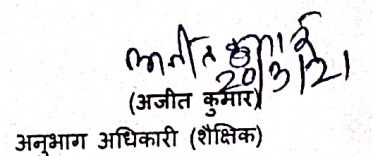 अजीत कुमार
20/3/21
(अजीत कुमार)
अनुभाग अधिकारी (शैक्षिक)